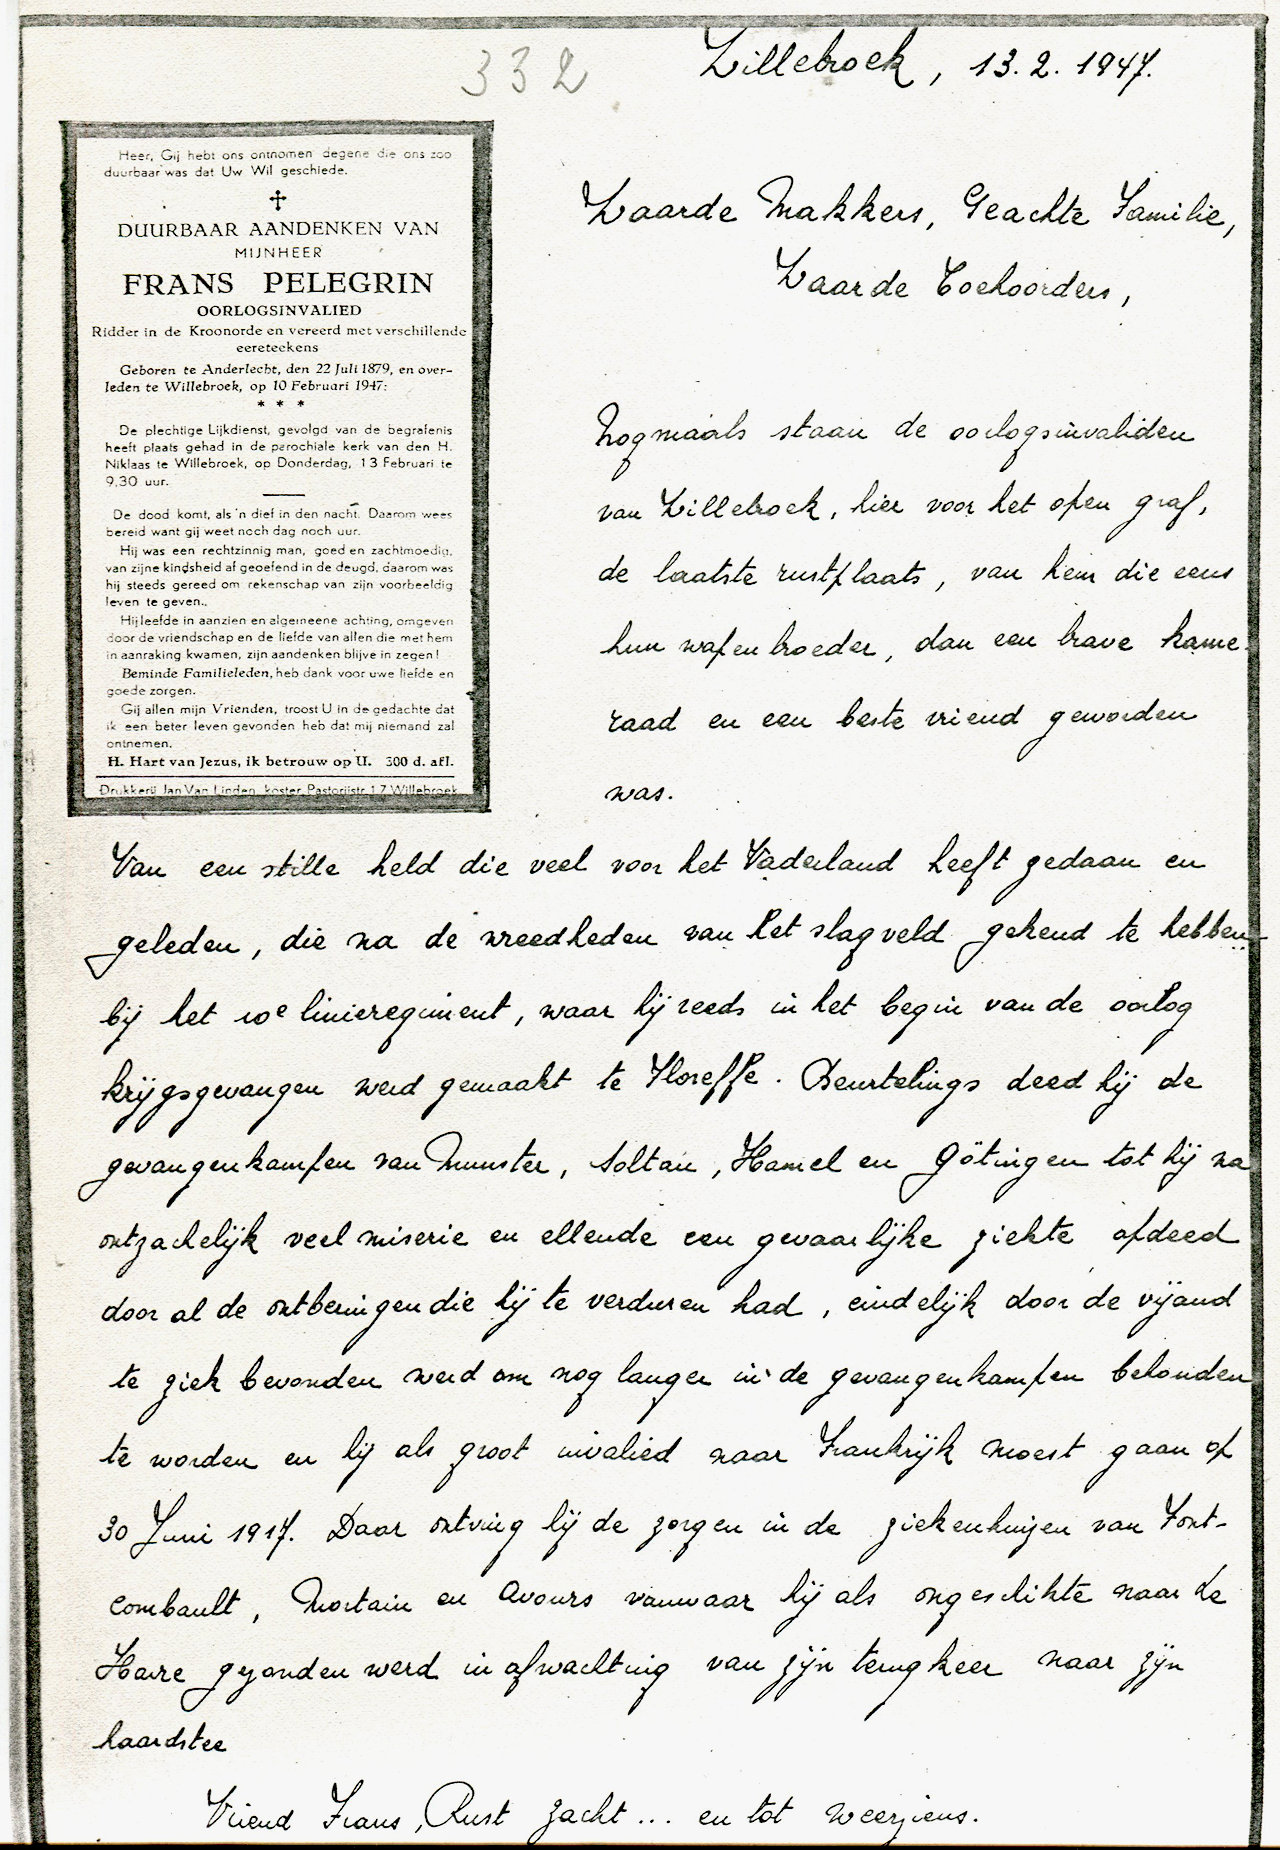 332
Willebroek, 13.2.1947.
Heer, Gij hebt ons ontnomen degene die ons zoo
duurbaar was dat Uw Wil geschiede.
DUURBAAR AANDENKEN VAN
MIJNHEER
FRANS PELEGRIN
OORLOGSINVALIED
Ridder in de Kroonorde en vereerd met verschillende
eereteekens
Geboren te Anderlecht, den 22 Juli 1879, en over-
leden te Willebroek, op 10 Februari 1947:
* * *
De plechtige Lijkdienst, gevolgd van de begrafenis
heeft plaats gehad in de parochiale kerk van den H.
Niklaas te Willebroek, op Donderdag, 13 Februari te
9,30 uur.
De dood komt, als 'n dief in den nacht. Daarom wees
bereid want gij weet noch dag noch uur.
Hij was een rechtzinnig man, goed en zachtmoedig,
van zijne kindsheid af geoefend in de deugd, daarom was
hij steeds gereed om rekenschap van zijn voorbeeldig
leven te geven..
Hij leefde in aanzien en algemeene achting, omgeven
door de vriendschap en de liefde van allen die met hem
in aanraking kwamen, zijn aandenken blijve in zegen!
Beminde Familieleden, heb dank voor uwe liefde en
goede zorgen.
Gij allen mijn Vrienden, troost U in de gedachte dat
ik een beter leven gevonden heb dat mij niemand zal
ontnemen.
H. Hart van Jezus, ik betrouw op U. 300 d. afl.
Drukkerij Jan Van Linden, koster, Pastorijstr. 17 Willebroek
Waarde Makkers, Geachte Familie,
Waarde Toehoorders,
Nogmaals staan de oorlogsinvaliden
van Willebroek, hier voor het open graf,
de laatste rustplaats, van hem die eens
hun wapenbroeder, dan een brave kame-
raad en een beste vriend geworden
was.
Van een stille held die veel voor het Vaderland heeft gedaan en
geleden, die na de wreedheden van het slagveld gekend te hebben
bij het 10e linieregiment, waar hij reeds in het begin van de oorlog
krijgsgevangen werd gemaakt te Floreffe. Beurtelings deed hij de
gevangenkampen van Munster, Soltau, Hamel en Götingen tot hij na
ontzachelijk veel miserie en ellende een gevaarlijke ziekte opdeed
door al de ontberingen die hij te verduren had, eindelijk door de vijand
te ziek bevonden werd om nog langer in de gevangenkampen behouden
te worden en hij als groot invalied naar Frankrijk moest gaan op
30 Juni 1917. Daar ontving hij de zorgen in de ziekenhuizen van Font-
combault, Mortain en Avours vanwaar hij als ongeschikte naar Le
Havre gezonden werd in afwachting van zijn terugkeer naar zijn
haardstee
Vriend Frans, Rust zacht... en tot weerziens.